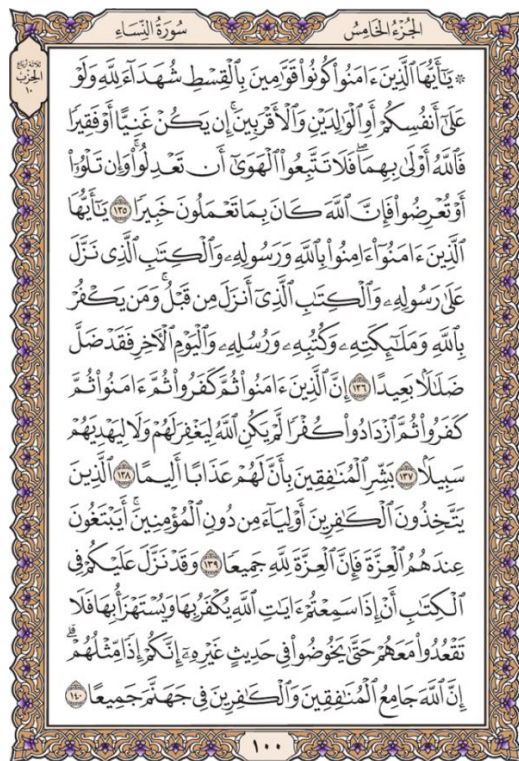 الجُزْءُ الخَامِسُ
سُورَةُ النِّسَاءِ
ثلاثة أرباع
الحزب
١٠
۞ يَٰٓأَيُّهَا ٱلَّذِينَ ءَامَنُواْ كُونُواْ قَوَّٰمِينَ بِٱلْقِسْطِ شُهَدَآءَ لِلَّهِ وَلَوْ
عَلَىٰٓ أَنفُسِكُمْ أَوِ ٱلْوَٰلِدَيْنِ وَٱلْأَقْرَبِينَۚ إِن يَكُنْ غَنِيًّا أَوْ فَقِيرًا
فَٱللَّهُ أَوْلَىٰ بِهِمَاۖ فَلَا تَتَّبِعُواْ ٱلْهَوَىٰٓ أَن تَعْدِلُواْۚ وَإِن تَلْوُۥٓاْ
أَوْ تُعْرِضُواْ فَإِنَّ ٱللَّهَ كَانَ بِمَا تَعْمَلُونَ خَبِيرًا ١٣٥ يَٰٓأَيُّهَا
ٱلَّذِينَ ءَامَنُوٓاْ ءَامِنُواْ بِٱللَّهِ وَرَسُولِهِۦ وَٱلْكِتَٰبِ ٱلَّذِي نَزَّلَ
عَلَىٰ رَسُولِهِۦ وَٱلْكِتَٰبِ ٱلَّذِيٓ أَنزَلَ مِن قَبْلُۚ وَمَن يَكْفُرْ
بِٱللَّهِ وَمَلَٰٓئِكَتِهِۦ وَكُتُبِهِۦ وَرُسُلِهِۦ وَٱلْيَوْمِ ٱلْأٓخِرِ فَقَدْ ضَلَّ
ضَلَٰلَۢا بَعِيدًا ١٣٦ إِنَّ ٱلَّذِينَ ءَامَنُواْ ثُمَّ كَفَرُواْ ثُمَّ ءَامَنُواْ ثُمَّ
كَفَرُواْ ثُمَّ ٱزْدَادُواْ كُفْرًا لَّمْ يَكُنِ ٱللَّهُ لِيَغْفِرَ لَهُمْ وَلَا لِيَهْدِيَهُمْ
سَبِيلَۢا ١٣٧ بَشِّرِ ٱلْمُنَٰفِقِينَ بِأَنَّ لَهُمْ عَذَابًا أَلِيمًا ١٣٨ ٱلَّذِينَ
يَتَّخِذُونَ ٱلْكَٰفِرِينَ أَوْلِيَآءَ مِن دُونِ ٱلْمُؤْمِنِينَۚ أَيَبْتَغُونَ
عِندَهُمُ ٱلْعِزَّةَ فَإِنَّ ٱلْعِزَّةَ لِلَّهِ جَمِيعًا ١٣٩ وَقَدْ نَزَّلَ عَلَيْكُمْ فِي
ٱلْكِتَٰبِ أَنْ إِذَا سَمِعْتُمْ ءَايَٰتِ ٱللَّهِ يُكْفَرُ بِهَا وَيُسْتَهْزَأُ بِهَا فَلَا
تَقْعُدُواْ مَعَهُمْ حَتَّىٰ يَخُوضُواْ فِي حَدِيثٍ غَيْرِهِۦٓ إِنَّكُمْ إِذًا مِّثْلُهُمْۗ
إِنَّ ٱللَّهَ جَامِعُ ٱلْمُنَٰفِقِينَ وَٱلْكَٰفِرِينَ فِي جَهَنَّمَ جَمِيعًا ١٤٠
١٠٠